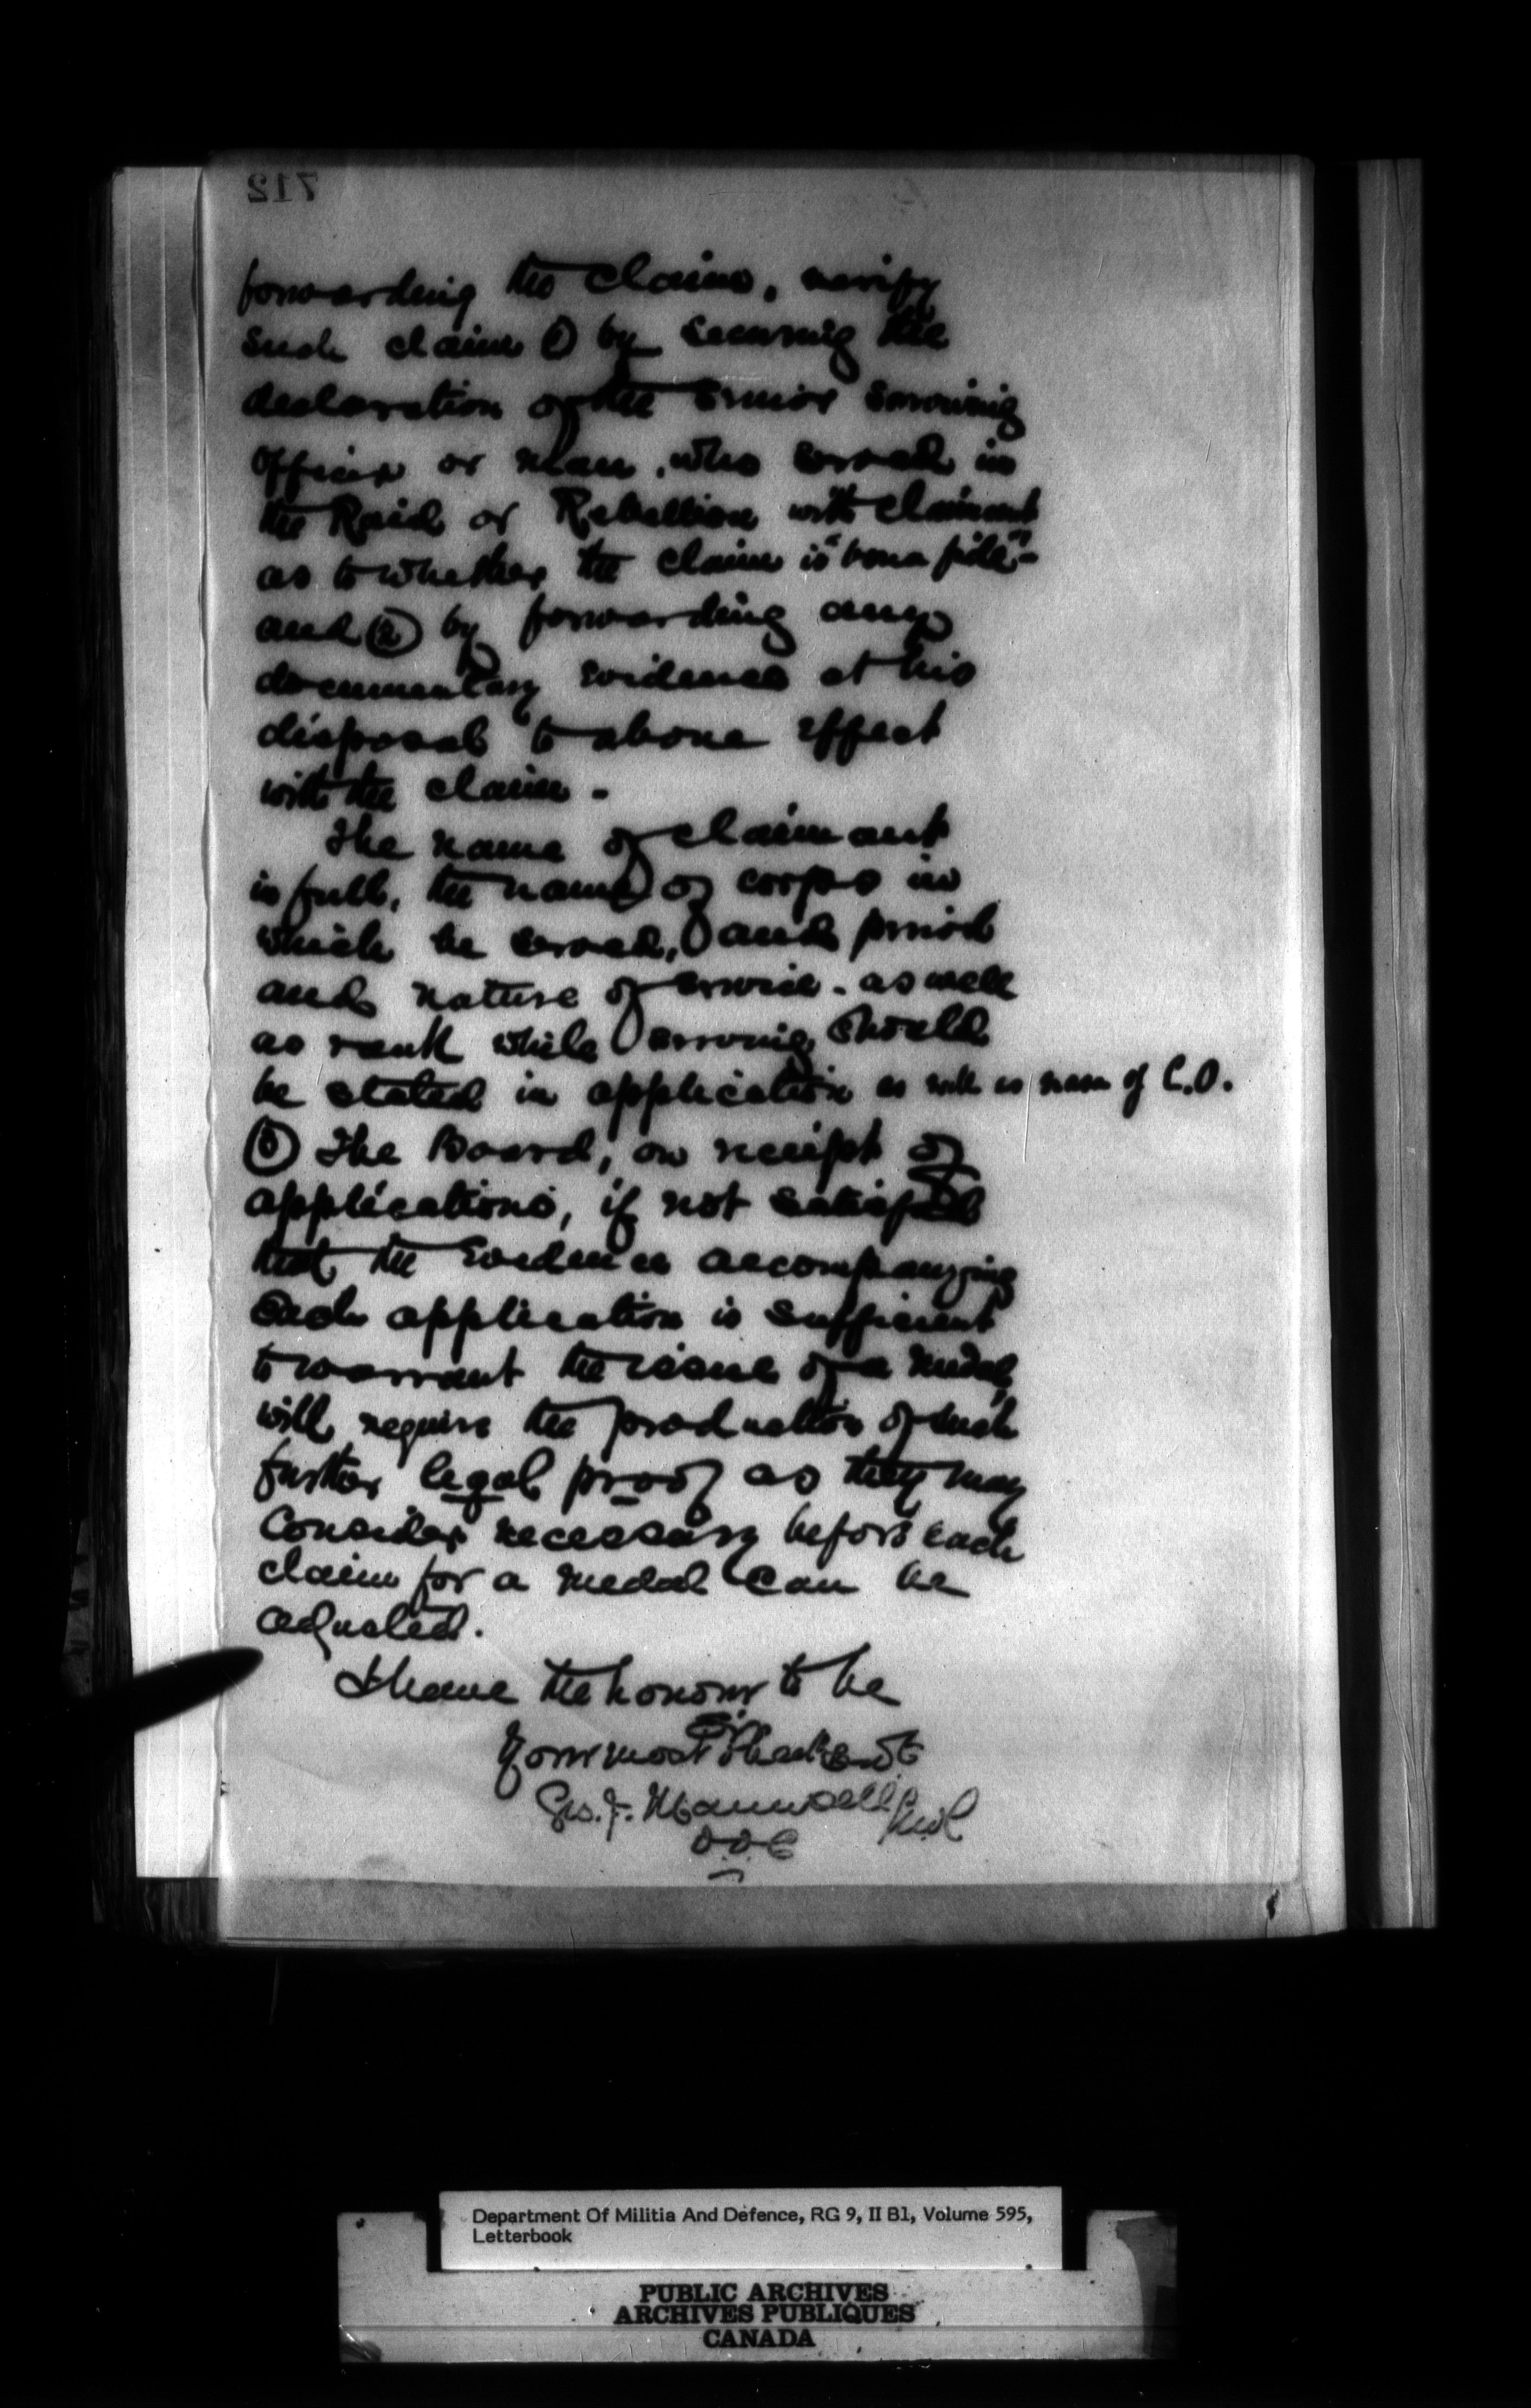 712
forwarding the claim, verify
such claim (1) by securing the
declaration of the senior surviving
officer or man, who served in
the Raid or Rebellion with claimant
as to whether the claim is "bona fide"-
and (2) by forwarding any
documentary evidence at his
disposal to above effect
with the claim -
The name of claimant
in full, the name of corps in
which he served, and period
and nature of service - as well
as rank while serving, should
be stated in application as well as name of C.O.
The Board, on receipt of
applications, if not satisfied
that the evidence accompanying
each application is sufficient
to warrant the issue of a medal,
will require the production of such
further legal proof as they may
consider necessary before each
claim for a medal can be
adjusted.
I have the honour to be
Sir
Your most Obedt Servt
Geo. J. Maunsell
D.O.C
Department Of Militia And Defence, RG 9, II B1, Volume 595,
Letterbook
PUBLIC ARCHIVES
ARCHIVES PUBLIQUES
CANADA